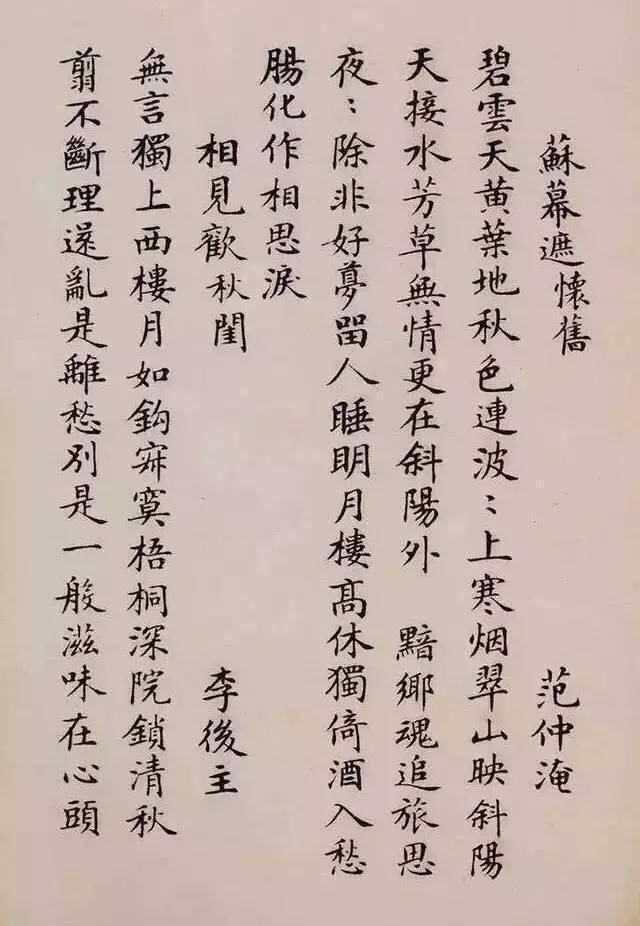 蘇幕遮懷舊 范仲淹
碧雲天黄葉地秋色連波〻上寒烟翠山映斜陽
天接水芳草無情更在斜陽外 黯鄉魂追旅思
夜〻除非好夢畱人睡明月樓高休獨倚酒入愁
腸化作相思淚
相見歡秋閨 李後主
無言獨上西樓月如鈎寂寞梧桐深院鎖清秋
翦不斷理還亂是離愁別是一般滋味在心頭